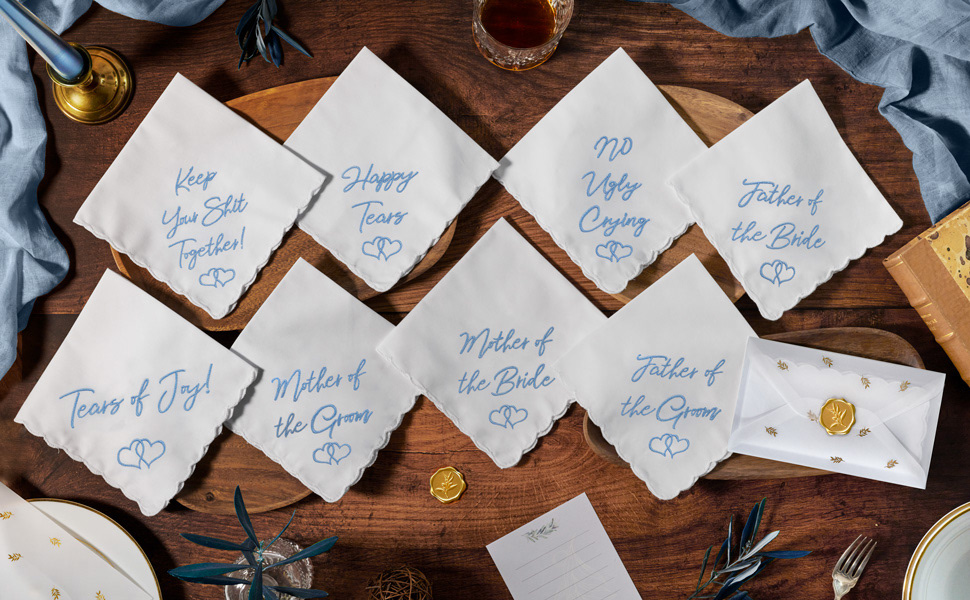 Keep
Your Shit
Together!
Happy
Tears
NO
Ugly
Crying
Father of
the Bride
Tears of Joy!
Mother of
the Groom
Mother of
the Bride
Father of
the Groom